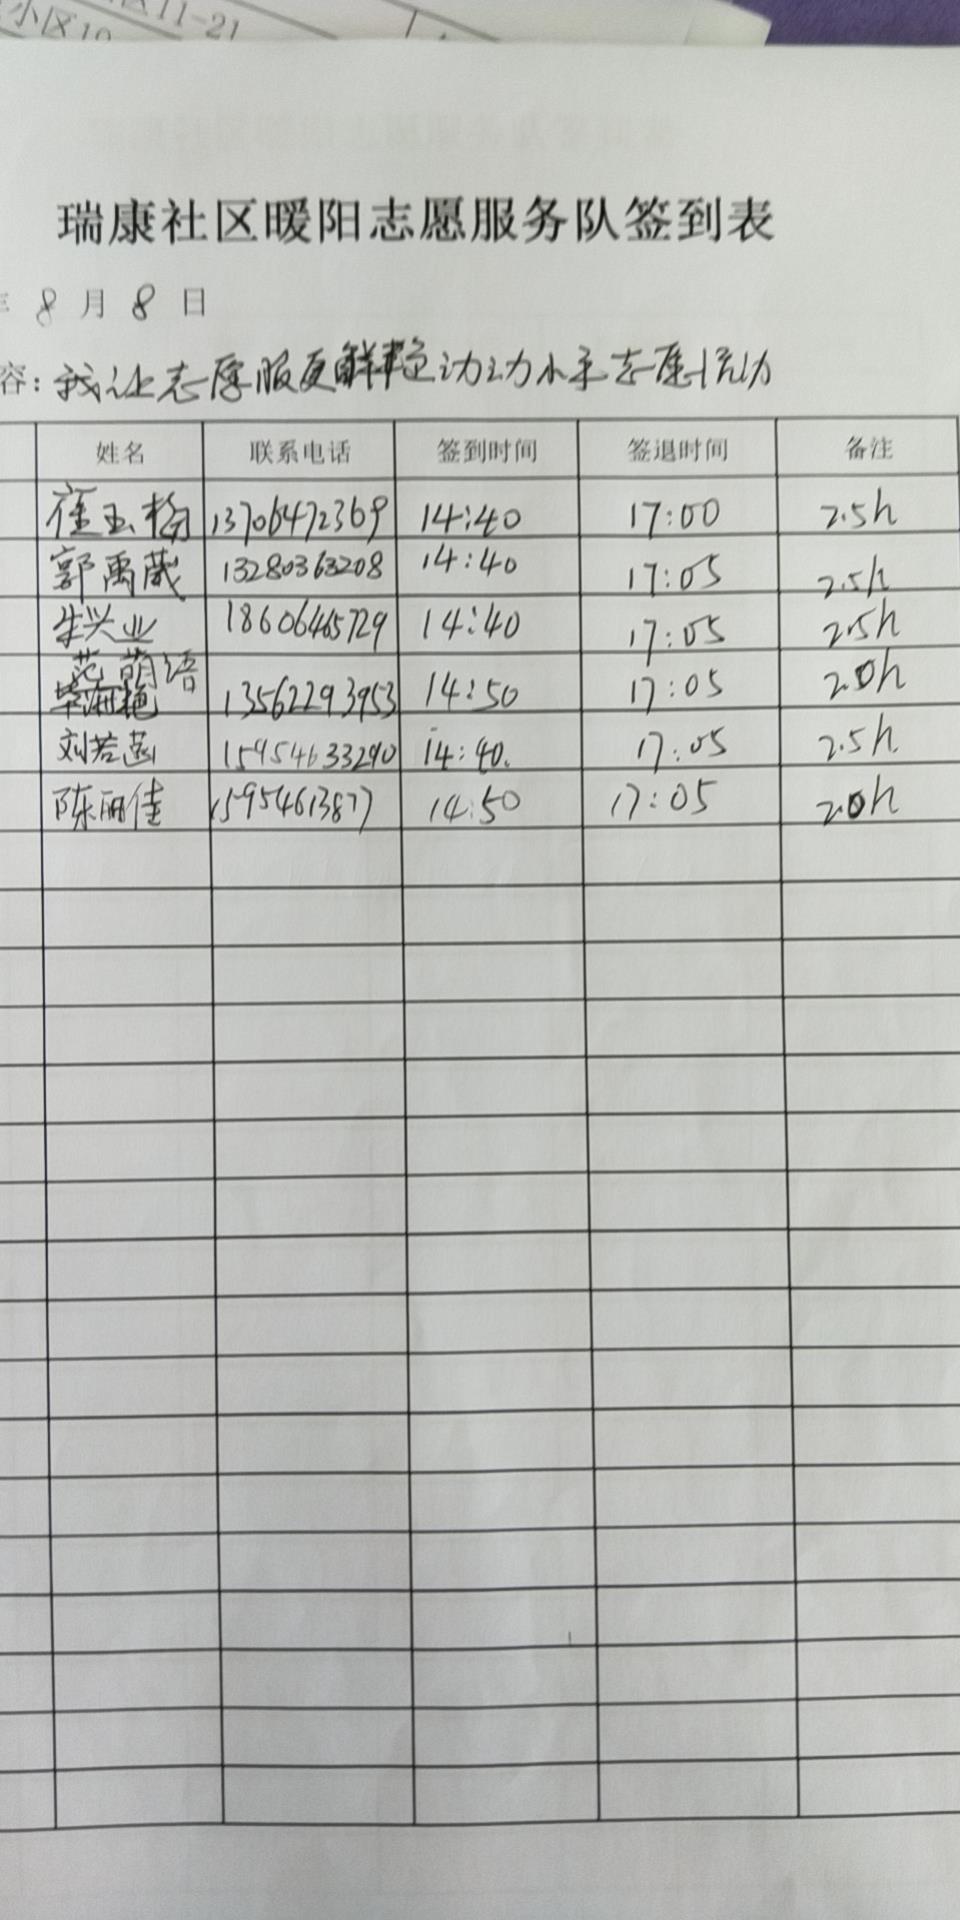 小区10
区11-21
瑞康社区暖阳志愿服务队签到表
8 月 8 日
容: 我让志愿服更鲜艳 动动小手志愿活动
姓名 联系电话 签到时间 签退时间 备注
崔玉梅 13706472369 14:40 17:00 2.5h
郭禹葳 13280363208 14:40 17:05 2.5h
牟兴业 18606465729 14:40 17:05 2.5h
范萌语 13562293953 14:50 17:05 2.0h
刘若菡 15954633290 14:40. 17:05 2.5h.
陈丽佳 15954613877 14:50 17:05 2.0h